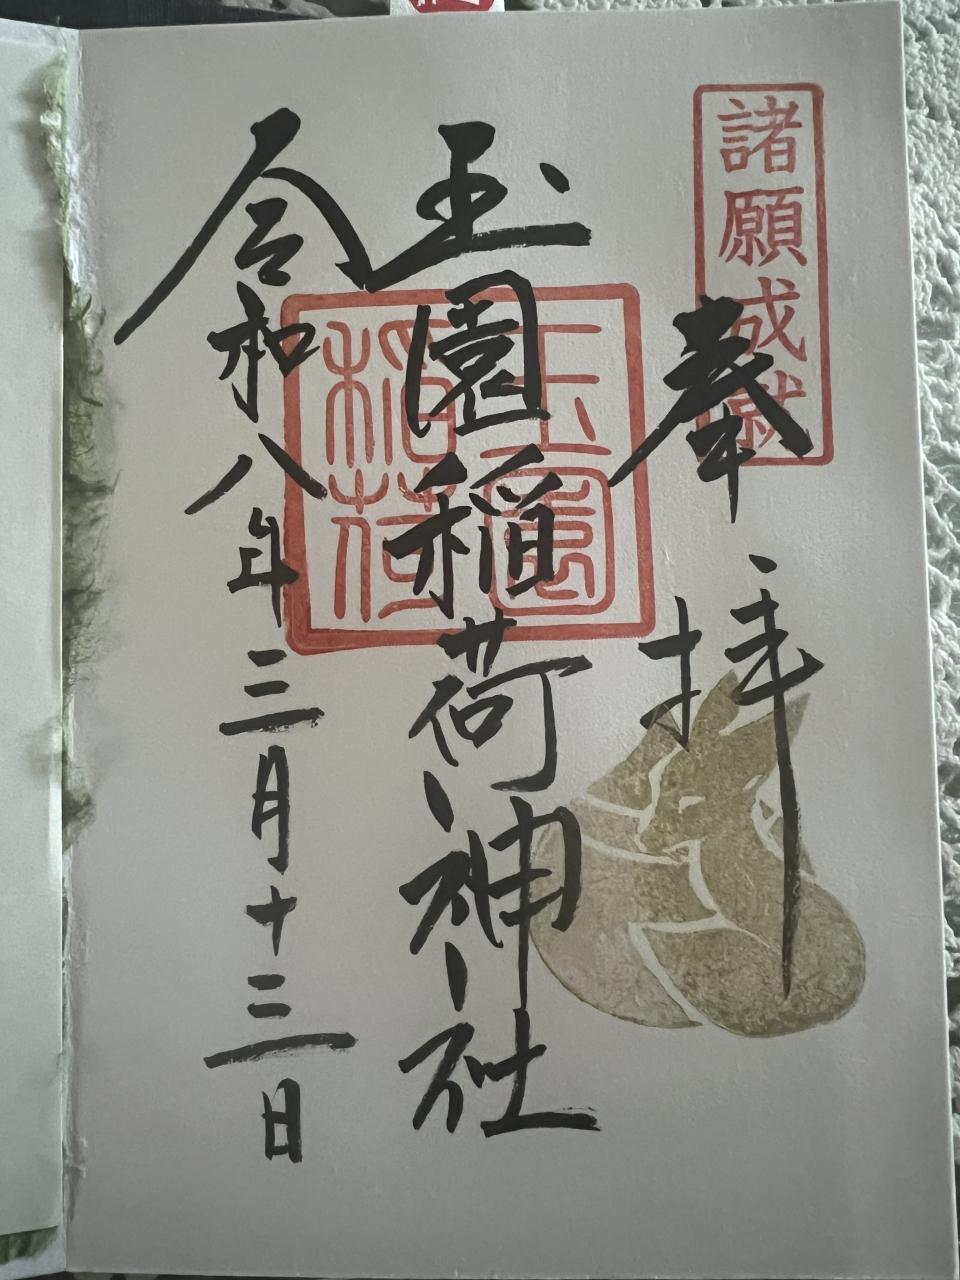 諸願成就
奉拝
玉園稲荷神社
玉園稲荷
令和八年三月十三日